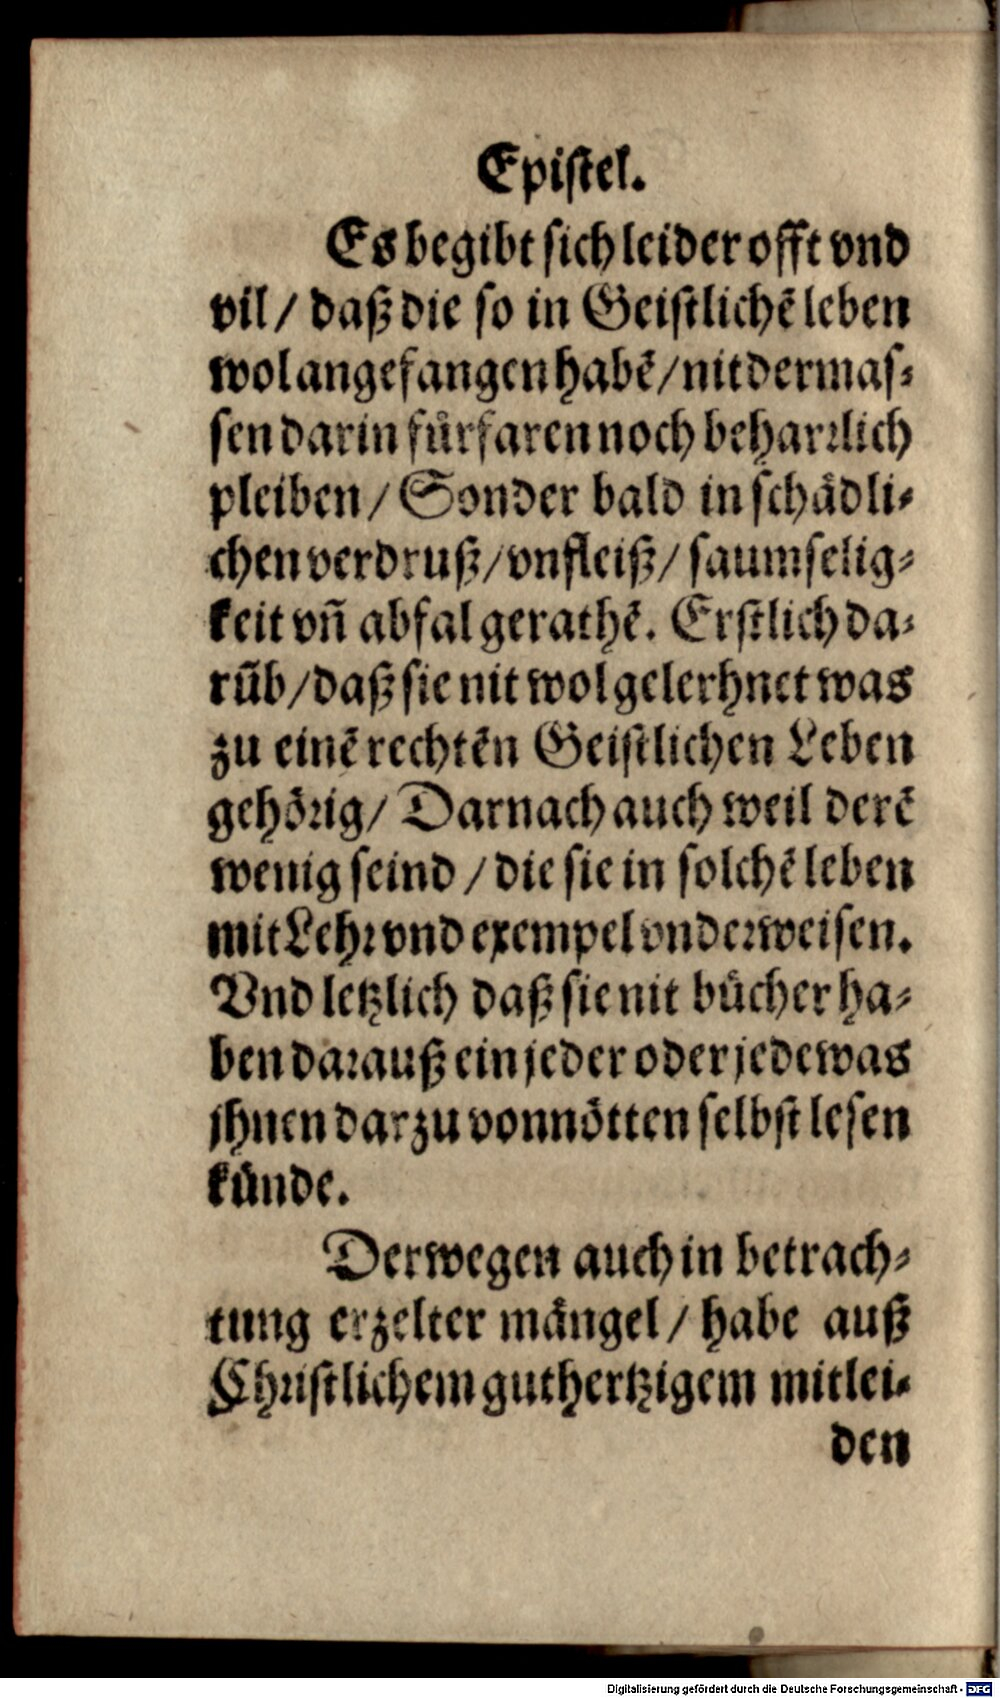 Epistel.
Es begibt sich leider offt vnd
vil / daß die so in Geistlichē leben
wol angefangen habē / nit dermas⸗
sen darin fürfaren noch beharrlich
pleiben / Sonder bald in schädli⸗
chen verdruß / vnfleiß / saumselig⸗
keit vñ abfal gerathē. Erstlich da⸗
rūb / daß sie nit wol gelerhnet was
zu einē rechtēn Geistlichen Leben
gehörig / Darnach auch weil derē
wenig seind / die sie in solchē leben
mit Lehr vnd exempel vnderweisen.
Vnd letzlich daß sie nit bücher ha⸗
ben darauß ein jeder oder jede was
jhnen darzu vonnötten selbst lesen
künde.
Derwegen auch in betrach⸗
tung erzelter mängel / habe auß
Christlichem guthertzigem mitlei⸗
den
Digitalisierung gefördert durch die Deutsche Forschungsgemeinschaft - DFG